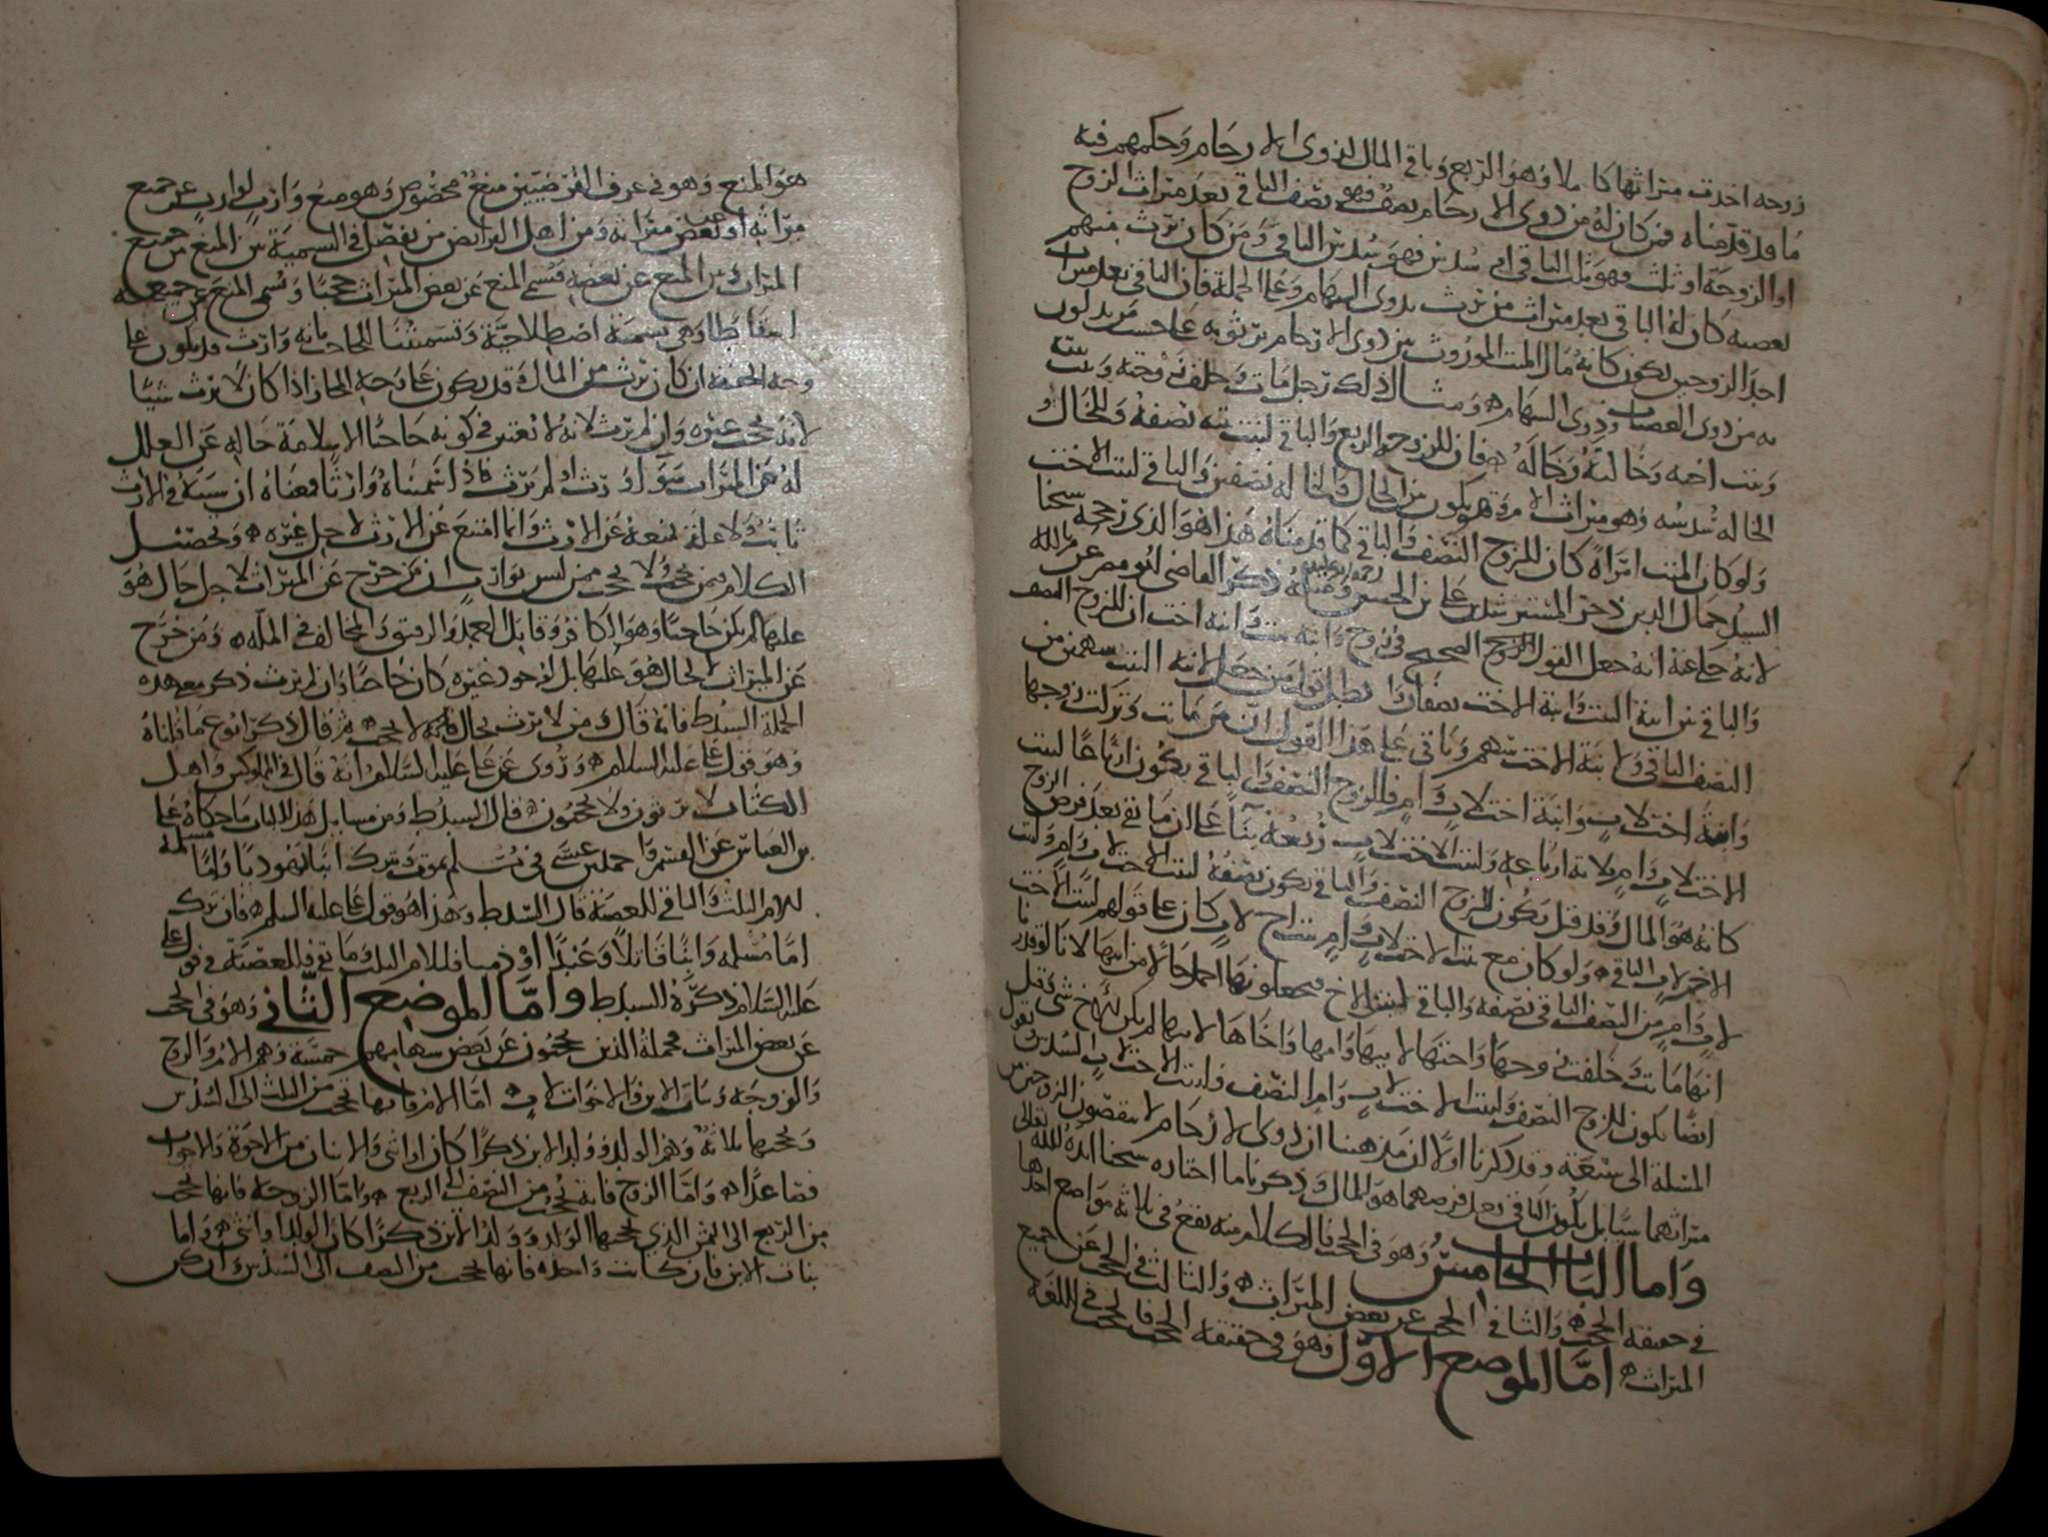 زوجه اخذت ميراثها كاملا وهو الربع وباقي المال لذوي الارحام وحكمهم فيه
ما قد قدمناه فمن كان له من ذوي الارحام نصف فهو نصف الباقي بعد ميراث الزوج
او الزوجة او ثلث فهو ثلث الباقي او سدس فهو سدس الباقي ومن كان يرث منهم
تعصيبه كان له الباقي بعد ميراث من يرث بذوي السهام وعلى الجملة فان الباقي بعد ميراث
احد الزوجين يكون كانه مال الميت الموروث بين ذوي الارحام يرثونه على حسب من يدلون
به من ذوي العصبات وذوي السهام ومثال ذلك رجل مات وخلف زوجته وبنت بنت
وبنت اخيه وخالته وخاله فان للزوجه الربع والباقي لبنت بنته نصفه وللخال و
الخاله سدسه وهو ميراث الام وهو يكون بين الخال والخاله نصفين والباقي لبنت الاخ
ولو كان الميت امراة كان للزوج النصف والباقي كما قدمناه هذا هو الذي رجحه شيخنا
السيد جمال الدين ذخر المسترشدين علي بن الحسين رحمة الله عليه ذكر القاضي ابو مضر عن
لانه جماعة انه جعل القول الصحيح في زوج وابنة بنت وابنة اخت ان للزوج النصف
والباقي بين ابنة البنت وابنة الاخت نصفان وابطل قول من جعل لابنة البنت سهمين من
النصف الباقي ولابنة الاخت سهم وياتي على هذا القول ان من ماتت وتركت زوجها
وابنة اخت لاب وابنة اخت لاب وام فللزوج النصف والباقي يكون ارباعا لبنت
الاخت لاب وام ثلاثة ارباعه ولبنت الاخت لاب ربعه بناء على ان ما بقي بعد فرض الزوج
كانه هو المال وقد قيل يكون للزوج النصف والباقي يكون نصفه لبنت الاخت لاب وام ولبنت
الاخت لاب الباقي ولو كان مع بنت الاخت لاب وام بنت اخ لاب كان على قولهم لبنت الاخت
لاب وام من النصف الباقي نصفه والباقي لبنت الاخ فيجعلونها احسن حالا من ابيها لانا لو قدرنا
انها ماتت وخلفت زوجها واختها لابيها وامها واخاها لابيها لم يكن للاخ شي وقيل
ايضا يكون للزوج النصف ولبنت الاخت لاب وام النصف ولبنت الاخت لاب السدس تعول
المسئلة الى سبعة وقد ذكرنا اولا ان مذهبنا ان ذوي الارحام لا ينقصون الزوجين من
ميراثهما شيا بل يكون الباقي بعد فرضهما هو المال ذكرنا ما اختاره شيخنا ايده الله تعالى
واما الباب الخامس وهو في الحجب فالكلام منه يقع في ثلاثة مواضع احدها
في حقيقه الحجب والثاني في الحجب عن بعض الميراث والثالث في الحجب عن جميع
الميراث اما الموضع الاول وهو في حقيقه الحجب فالحجب في اللغة
هو المنع وهو في عرف الفرضيين منع مخصوص وهو منع وارث لوارث عن جميع
ميراثه او بعض ميراثه ومن اهل الفرائض من يفصل في التسمية بين المنع من جميع
الميراث وبين المنع عن بعضه فسمي المنع عن بعض الميراث حجبا وسمي المنع عن جميعه
اسقاطا وهي تسمية اصطلاحية وتسميتنا للحاجب بانه وارث قد يكون على
وجه الحقيقه ان كان يرث من المال وقد يكون على وجه المجاز اذا كان لا يرث شيئا
لانه يحجب غيره وان لم يرث لانه لا نعتبر في كونه حاجبا الا سلامة حاله عن العلل
له عن الميراث سوا ورث او لم يرث فاذا سميناه وارثا فمعناه ان سببه في الارث
ثابت ولا علة تمنعه عن الارث وانما امتنع عن الارث لاجل غيره وتحصيل
الكلام فيمن يحجب ولا يحجب ممن ليس بوارث ان من خرج عن الميراث لاجل حال هو
عليها لم يكن حاجبا وهو الكافر وقاتل العمد والرقيق والمخالف في الملة ومن خرج
عن الميراث لا لحال هو عليها بل لوجود غيره كان حاجبا وان لم يرث ذكر معنى هذه
الجملة السيد ط فانه قال من لا يرث بحال فانه لا يحجب ثم قال ذكر انواع ما قلناه
وهو قول علي عليه السلام وروى عن علي عليه السلام انه قال في المملوكين واهل
الكتاب لا يرثون ولا يحجبون قال السيد ط ومن مسايل هذا الباب ما حكاه علي
بن العباس عن القسم واحمد بن عيسى في مسلم يموت وترك ابنا يهوديا واما مسلمة
للام الثلث والباقي للعصبة قال السيد ط وهذا هو قول علي عليه السلم فان ترك
اما مسلمه وابنا قاتلا وعبدا او ذميا فللام الثلث وما بقي فللعصبة في قول علي
عليه السلام ذكره السيد ط واما الموضع الثاني وهو في الحجب
عن بعض الميراث فجملة الذين يحجبون عن بعض سهامهم خمسة وهم الام والزوج
والزوجه وبنات الابن والاخوات لاب اما الام فانها تحجب من الثلث الى السدس
ويحجبها ثلاثة وهم الولد وولد الابن ذكرا كان او انثى والاثنان من الاخوة والاخوات
فصاعدا واما الزوج فانه يحجب من النصف الى الربع واما الزوجه فانها تحجب
من الربع الى الثمن الذي يحجبها الولد وولد الابن ذكرا كان الولد او انثى واما
بنات الابن فان كانت واحده فانها تحجب من النصف الى السدس وان كن